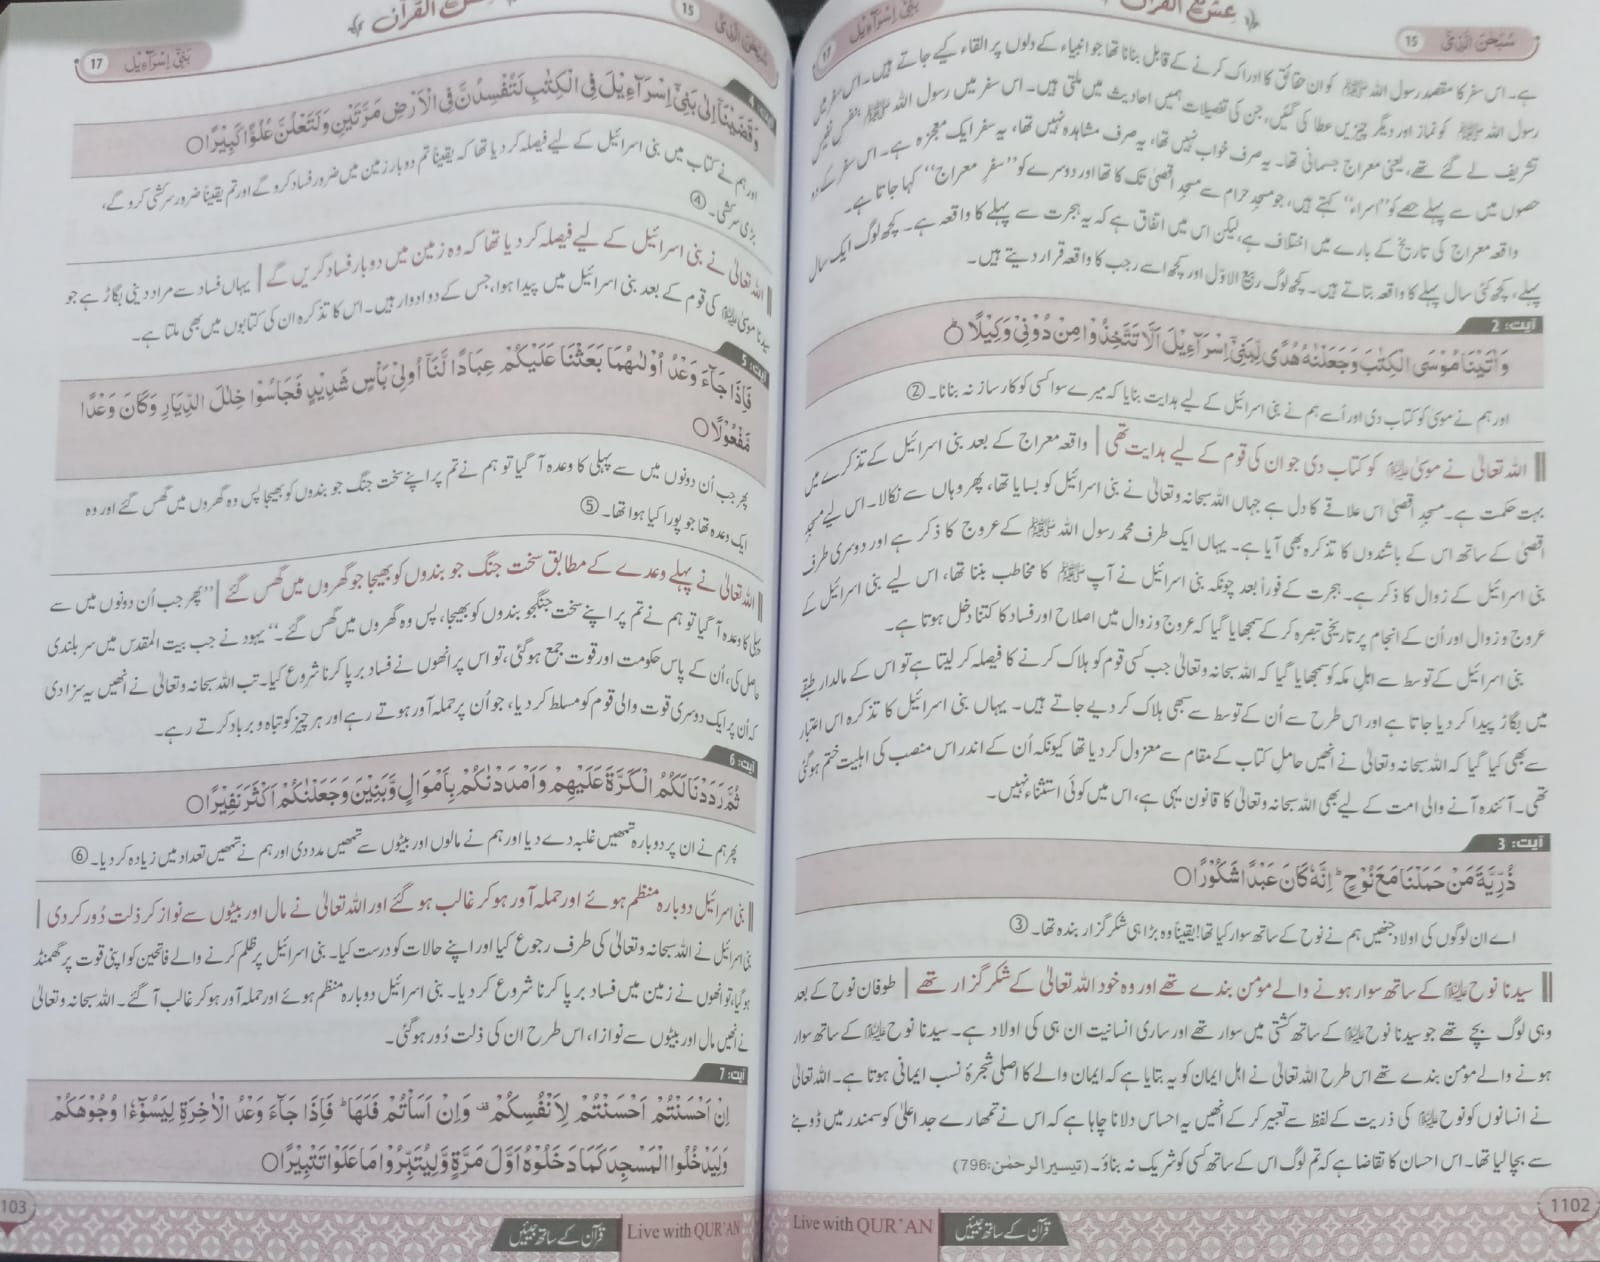 سُبْحٰنَ الَّذِیْٓ 15
عِشْقُ الْقُرْآن
17 بَنِیْٓ اِسْرَآءِیْل
ہے۔ اس سفر کا مقصد رسول اللہ ﷺ کو ان حقائق کا ادراک کرنے کے قابل بنانا تھا جو انبیاء کے دلوں پر القاء کیے جاتے ہیں۔ اس سفر میں
رسول اللہ ﷺ کو نماز اور دیگر چیزیں عطا کی گئیں، جن کی تفصیلات ہمیں احادیث میں ملتی ہیں۔ اس سفر میں رسول اللہ ﷺ بنفسِ نفیس
تشریف لے گئے تھے، یعنی معراج جسمانی تھا۔ یہ صرف خواب نہیں تھا، یہ صرف مشاہدہ نہیں تھا، یہ سفر ایک معجزہ ہے۔ اس سفر کے دو
حصوں میں سے پہلے حصے کو ’’اسراء‘‘ کہتے ہیں، جو مسجدِ حرام سے مسجدِ اقصیٰ تک کا تھا اور دوسرے کو ’’سفرِ معراج‘‘ کہا جاتا ہے۔
واقعہ معراج کی تاریخ کے بارے میں اختلاف ہے، لیکن اس میں اتفاق ہے کہ یہ ہجرت سے پہلے کا واقعہ ہے۔ کچھ لوگ ایک سال
پہلے، کچھ کئی سال پہلے کا واقعہ بتاتے ہیں۔ کچھ لوگ ربیع الاوّل اور کچھ اسے رجب کا واقعہ قرار دیتے ہیں۔
آیت: 2
وَاٰتَیْنَا مُوْسَی الْکِتٰبَ وَجَعَلْنٰهُ هُدًی لِّبَنِیْٓ اِسْرَآءِیْلَ اَلَّا تَتَّخِذُوْا مِنْ دُوْنِیْ وَکِیْلًا ○ؕ
اور ہم نے موسیٰ کو کتاب دی اور اُسے ہم نے بنی اسرائیل کے لیے ہدایت بنایا کہ میرے سوا کسی کو کارساز نہ بنانا۔ ②
اللہ تعالیٰ نے موسیٰ علیہ السلام کو کتاب دی جو ان کی قوم کے لیے ہدایت تھی | واقعہ معراج کے بعد بنی اسرائیل کے تذکرے میں
بہت حکمت ہے۔ مسجدِ اقصیٰ اس علاقے کا دل ہے جہاں اللہ سبحانہ وتعالیٰ نے بنی اسرائیل کو بسایا تھا، پھر وہاں سے نکالا۔ اس لیے مسجدِ
اقصیٰ کے ساتھ اس کے باشندوں کا تذکرہ بھی آیا ہے۔ یہاں ایک طرف محمد رسول اللہ ﷺ کے عروج کا ذکر ہے اور دوسری طرف
بنی اسرائیل کے زوال کا ذکر ہے۔ ہجرت کے فوراً بعد چونکہ بنی اسرائیل نے آپ ﷺ کا مخاطب بننا تھا، اس لیے بنی اسرائیل کے
عروج و زوال اور اُن کے انجام پر تاریخی تبصرہ کر کے سمجھایا گیا کہ عروج و زوال میں اصلاح اور فساد کا کتنا دخل ہوتا ہے۔
بنی اسرائیل کے توسط سے اہلِ مکہ کو سمجھایا گیا کہ اللہ سبحانہ وتعالیٰ جب کسی قوم کو ہلاک کرنے کا فیصلہ کر لیتا ہے تو اس کے مالدار طبقے
میں بگاڑ پیدا کر دیا جاتا ہے اور اس طرح سے اُن کے توسط سے سبھی ہلاک کر دیے جاتے ہیں۔ یہاں بنی اسرائیل کا تذکرہ اس اعتبار
سے بھی کیا گیا کہ اللہ سبحانہ وتعالیٰ نے انھیں حاملِ کتاب کے مقام سے معزول کر دیا تھا کیونکہ اُن کے اندر اس منصب کی اہلیت ختم ہو گئی
تھی۔ آئندہ آنے والی امت کے لیے بھی اللہ سبحانہ وتعالیٰ کا قانون یہی ہے، اس میں کوئی استثناء نہیں۔
آیت: 3
ذُرِّیَّةَ مَنْ حَمَلْنَا مَعَ نُوْحٍ ؕ اِنَّهٗ کَانَ عَبْدًا شَکُوْرًا ○
اے ان لوگوں کی اولاد جنھیں ہم نے نوح کے ساتھ سوار کیا تھا! یقیناً وہ بڑا ہی شکر گزار بندہ تھا۔ ③
سیدنا نوح علیہ السلام کے ساتھ سوار ہونے والے مؤمن بندے تھے اور وہ خود اللہ تعالیٰ کے شکر گزار تھے | طوفانِ نوح کے بعد
وہی لوگ بچے تھے جو سیدنا نوح علیہ السلام کے ساتھ کشتی میں سوار تھے اور ساری انسانیت ان ہی کی اولاد ہے۔ سیدنا نوح علیہ السلام کے ساتھ سوار
ہونے والے مؤمن بندے تھے اس طرح اللہ تعالیٰ نے اہلِ ایمان کو یہ بتایا ہے کہ ایمان والے کا اصلی شجرۂ نسب ایمانی ہوتا ہے۔ اللہ تعالیٰ
نے انسانوں کو نوح علیہ السلام کی ذریت کے لفظ سے تعبیر کر کے انھیں یہ احساس دلانا چاہا ہے کہ اس نے تمھارے جدِ اعلیٰ کو سمندر میں ڈوبنے
سے بچا لیا تھا۔ اس احسان کا تقاضا ہے کہ تم لوگ اس کے ساتھ کسی کو شریک نہ بناؤ۔ (تیسیر الرحمٰن: 796)
1102
قرآن کے ساتھ جیئیں
Live with QUR'AN
سُبْحٰنَ الَّذِیْٓ 15
عِشْقُ الْقُرْآن
17 بَنِیْٓ اِسْرَآءِیْل
آیت: 4
وَقَضَیْنَآ اِلٰی بَنِیْٓ اِسْرَآءِیْلَ فِی الْکِتٰبِ لَتُفْسِدُنَّ فِی الْاَرْضِ مَرَّتَیْنِ وَلَتَعْلُنَّ عُلُوًّا کَبِیْرًا ○
اور ہم نے کتاب میں بنی اسرائیل کے لیے فیصلہ کر دیا تھا کہ یقیناً تم دوبار زمین میں ضرور فساد کرو گے اور تم یقیناً ضرور سرکشی کرو گے،
بڑی سرکشی۔ ④
اللہ تعالیٰ نے بنی اسرائیل کے لیے فیصلہ کر دیا تھا کہ وہ زمین میں دوبار فساد کریں گے | یہاں فساد سے مراد دینی بگاڑ ہے جو
سیدنا موسیٰ علیہ السلام کی قوم کے بعد بنی اسرائیل میں پیدا ہوا، جس کے دو ادوار ہیں۔ اس کا تذکرہ ان کی کتابوں میں بھی ملتا ہے۔
آیت: 5
فَاِذَا جَآءَ وَعْدُ اُوْلٰىهُمَا بَعَثْنَا عَلَیْکُمْ عِبَادًا لَّنَآ اُولِیْ بَاْسٍ شَدِیْدٍ فَجَاسُوْا خِلٰلَ الدِّیَارِ وَکَانَ وَعْدًا
مَّفْعُوْلًا ○
پھر جب اُن دونوں میں سے پہلی کا وعدہ آ گیا تو ہم نے تم پر اپنے سخت جنگ جو بندوں کو بھیجا پس وہ گھروں میں گھس گئے اور وہ
ایک وعدہ تھا جو پورا کیا ہوا تھا۔ ⑤
اللہ تعالیٰ نے پہلے وعدے کے مطابق سخت جنگ جو بندوں کو بھیجا جو گھروں میں گھس گئے | ’’پھر جب اُن دونوں میں سے
پہلی کا وعدہ آ گیا تو ہم نے تم پر اپنے سخت جنگجو بندوں کو بھیجا، پس وہ گھروں میں گھس گئے۔‘‘ یہود نے جب بیت المقدس میں سربلندی
حاصل کی، اُن کے پاس حکومت اور قوت جمع ہو گئی، تو اس پر انھوں نے فساد برپا کرنا شروع کیا۔ تب اللہ سبحانہ وتعالیٰ نے انھیں یہ سزا دی
کہ اُن پر ایک دوسری قوت والی قوم کو مسلط کر دیا، جو اُن پر حملہ آور ہوتے رہے اور ہر چیز کو تباہ و برباد کرتے رہے۔
آیت: 6
ثُمَّ رَدَدْنَا لَکُمُ الْکَرَّةَ عَلَیْهِمْ وَاَمْدَدْنٰکُمْ بِاَمْوَالٍ وَّبَنِیْنَ وَجَعَلْنٰکُمْ اَکْثَرَ نَفِیْرًا ○
پھر ہم نے ان پر دوبارہ تمھیں غلبہ دے دیا اور ہم نے مالوں اور بیٹوں سے تمھیں مدد دی اور ہم نے تمھیں تعداد میں زیادہ کر دیا۔ ⑥
بنی اسرائیل دوبارہ منظم ہوئے اور حملہ آور ہو کر غالب ہو گئے اور اللہ تعالیٰ نے مال اور بیٹوں سے نواز کر ذلت دُور کر دی |
بنی اسرائیل نے اللہ سبحانہ وتعالیٰ کی طرف رجوع کیا اور اپنے حالات کو درست کیا۔ بنی اسرائیل پر ظلم کرنے والے فاتحین کو اپنی قوت پر گھمنڈ
ہو گیا، تو انھوں نے زمین میں فساد برپا کرنا شروع کر دیا۔ بنی اسرائیل دوبارہ منظم ہوئے اور حملہ آور ہو کر غالب آ گئے۔ اللہ سبحانہ وتعالیٰ
نے انھیں مال اور بیٹوں سے نوازا، اس طرح ان کی ذلت دُور ہو گئی۔
آیت: 7
اِنْ اَحْسَنْتُمْ اَحْسَنْتُمْ لِاَنْفُسِکُمْ ۫ وَاِنْ اَسَاْتُمْ فَلَهَا ؕ فَاِذَا جَآءَ وَعْدُ الْاٰخِرَةِ لِیَسُوْٓءٗا وُجُوْهَکُمْ
وَلِیَدْخُلُوا الْمَسْجِدَ کَمَا دَخَلُوْهُ اَوَّلَ مَرَّةٍ وَّلِیُتَبِّرُوْا مَا عَلَوْا تَتْبِیْرًا ○
103
قرآن کے ساتھ جیئیں
Live with QUR'AN